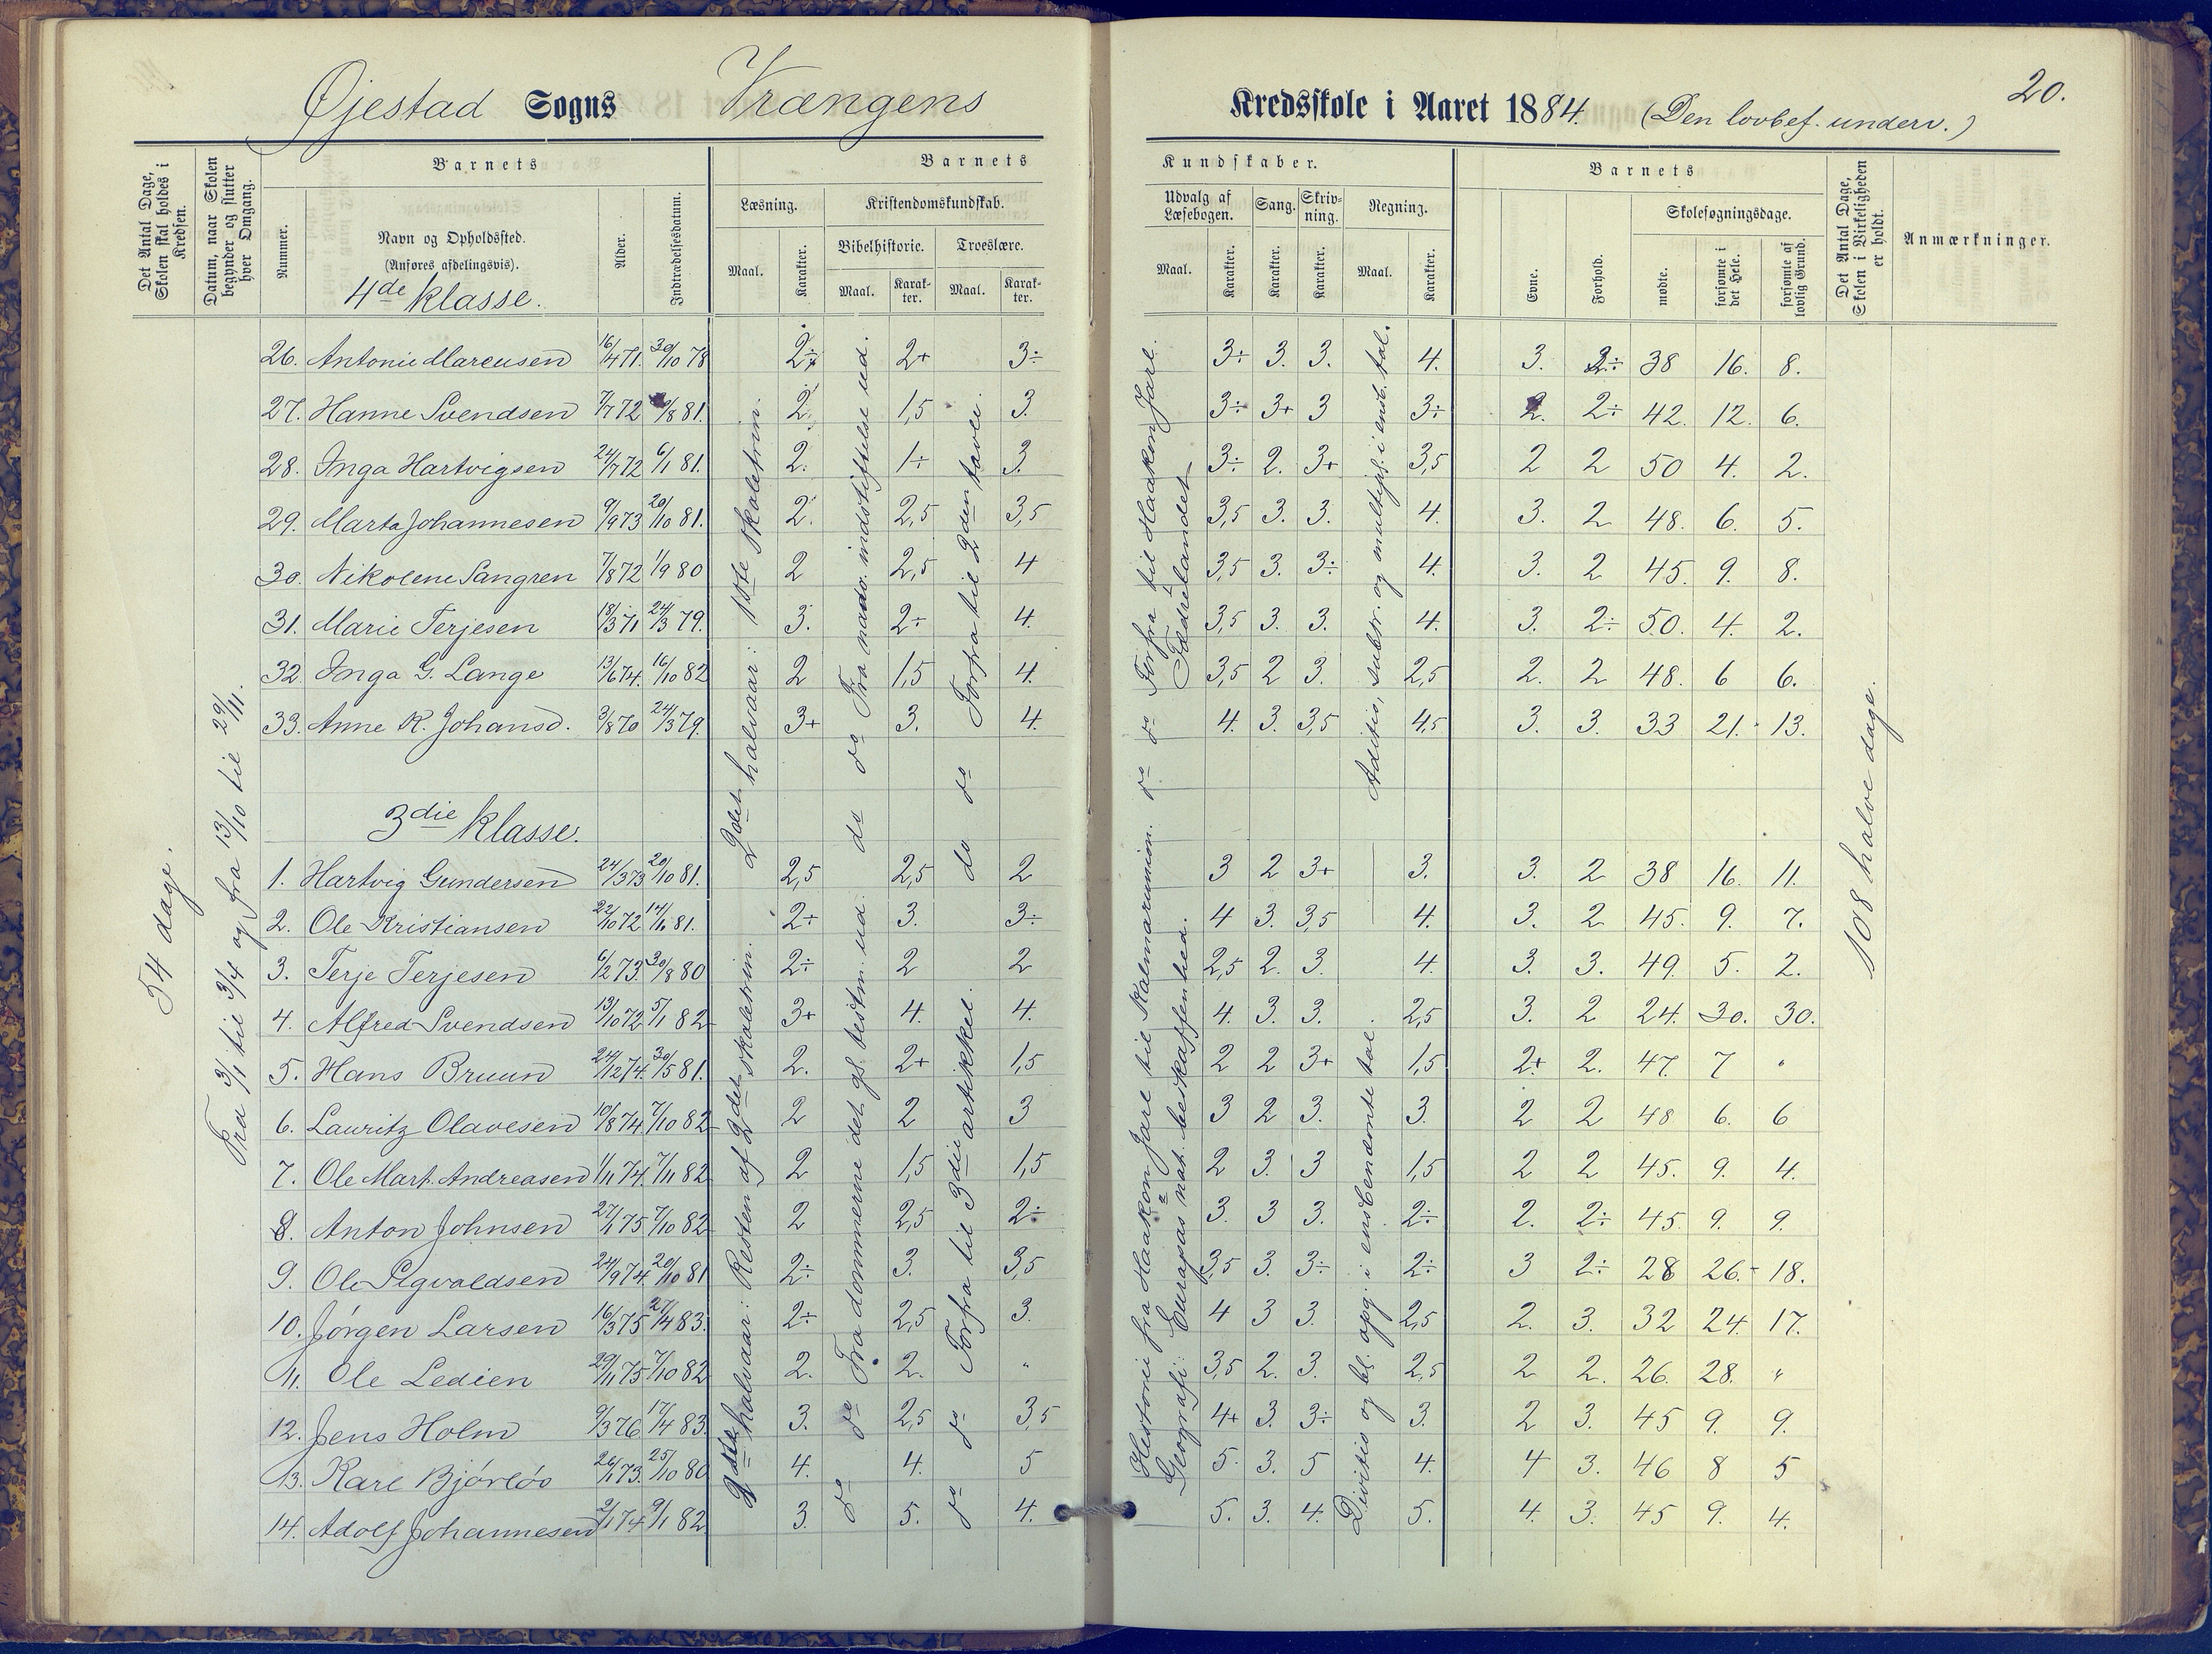 Øjestad Sogns Vrængens
Kredsskole i Aaret 1884. (Den lovbef. underv.) 20.
Det Antal Dage, Skolen skal holdes i Kredsen.
Datum, naar Skolen begynder og slutter hver Omgang.
Barnets
Nummer.
Navn og Opholdssted.
(Anføres afdelingsvis).
4de klasse.
Alder.
Indtrædelsesdatum.
Barnets
Læsning.
Maal.
Karakter.
Kristendomskundskab.
Bibelhistorie.
Maal.
Karakter.
Troeslære.
Maal.
Karakter.
Kundskaber.
Udvalg af Læsebogen.
Maal.
Karakter.
Sang.
Karakter.
Skrivning.
Karakter.
Regning.
Maal.
Karakter.
Barnets
Evne.
Forhold.
Skolesøgningsdage.
mødte.
forsømte i det Hele.
forsømte af lovlig Grund.
Det Antal Dage, Skolen i Virkeligheden er holdt.
Anmærkninger.
26. Antonie Marcusen 16/4 71. 30/10 78 2÷ 2+ 3÷ 3÷ 3. 3. 4. 3. 2÷ 38 16. 8.
27. Hanne Svendsen 7/7 72 /8 81. 2. 1,5 3. 3÷ 3+ 3 3÷ 2. 2÷ 42. 12. 6.
28. Inga Hartvigsen 24/7 72 6/1 81. 2. 1÷ 3. 3÷ 2. 3+ 3,5 2 2 50 4. 2.
29. Marta Johannesen 9/9 73 20/10 81. 2. 2,5 3,5 3,5 3. 3. 4. 3. 2 48. 6. 5.
30. Nikolene Sangren 7/8 72 1/9 80 2 2,5 4 3,5 3. 3÷ 4. 3. 2 45. 9. 8.
31. Marie Terjesen 18/3 71 24/3 79. 3. 2÷ 4. 3,5 3. 3. 4. 3. 2÷ 50. 4. 2.
32. Inga G. Lange 13/6 74. 16/10 82 2 1,5 4. 3,5 2 3. 2,5 2. 2 48. 6 6.
33. Anne K. Johansd. 3/8 70 24/3 79. 3+ 3. 4. 4. 3. 3,5 4,5 3. 3. 33 21. 13.
3die klasse.
1. Hartvig Gundersen 24/3 73 20/10 81. 2,5 2,5 2 3 2 3+ 3. 3. 2 38 16. 11.
2. Ole Kristiansen 22/10 72 14/11 81. 2÷ 3. 3÷ 4 3. 3,5 4. 3. 2 45. 9. 7.
3. Terje Terjesen 6/2 73. 30/8 80 2÷ 2 2 2,5 2. 3. 4. 3. 3. 49. 5. 2.
4. Alfred Svendsen 13/10 72 5/1 82 3+ 4. 4. 4. 3. 3. 2,5 3. 2 24. 30. 30.
5. Hans Bruun 24/12 74. 30/5 81. 2. 2+ 1,5 2 2 3+ 1,5 2+ 2. 47. 7 "
6. Lauritz Olavesen 10/8 74 7/10 82 2 2 3 3 2 3. 3. 2 2 48 6. 6
7. Ole Mart. Andreasen 1/11 74. 7/11 82 2 1,5 1,5 2 3. 3 1,5 2 2 45. 9. 4.
8. Anton Johnsen 27/1 75 7/10 82 2 2,5 2÷ 3. 3 3. 2÷ 2. 2÷ 45. 9. 9.
9. Ole Sigvaldsen 24/9 74. 20/10 81 2÷ 3. 3,5 3,5 3. 3÷ 2÷ 3 2÷ 28 26. 18.
10. Jørgen Larsen 16/3 75 27/4 83. 2÷ 2,5 3. 4 3 3. 2,5 2. 3. 32 24. 17.
11. Ole Ledien 29/11 75 7/10 82 2. 2. " 3,5 2. 3. 2,5 2 2. 26. 28. "
12. Jens Holm 9/3 76 17/4 83. 3. 2,5 3,5 4+ 3. 3÷ 3. 2 3. 45 9. 9.
13. Karl Bjórlós 26/1 73. 25/10 80 4. 4. 5 5. 3. 5 4. 4 3. 46 8 5
14. Adolf Johannesen 2/1 74 9/1 82 3. 5. 4. 5. 3. 4. 5. 4. 3. 45 9. 4.
54 dage.
Fra 3/1 til 3/4 og fra 13/10 til 29/11.
1ste halvaar: Resten af 2det skoletrin.
2det halvaar: 1ste skoletrin.
do do Fra dommerne det gl. testm. ud.
do do Fra nadv. indstiftelse ud.
do do Forfra til 3die artikkel.
do do Forfra til 2den tavle.
Historie fra Haakon Jarl til Kalmarunion. do do Forfra til Haakon Jarl.
Geografi: Europas nat. beskaffenhed. Fædrelandet
Divitio og bl. opg. i ensbenævnte tal.
Aditio, subtr. og multipl. i ensb. tal.
108 halve dage.